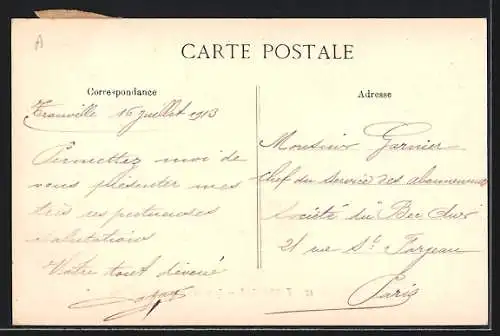 CARTE POSTALE
Correspondance
Adresse
Tranville 16 Juillet 1913
Permettez moi de
vous présenter mes
très respectueuses
salutations
Votre tout dévoué
Monsieur Garnier
chef du service des abonnements
Société du Bec Auer
21 rue St. Fargeau
Paris